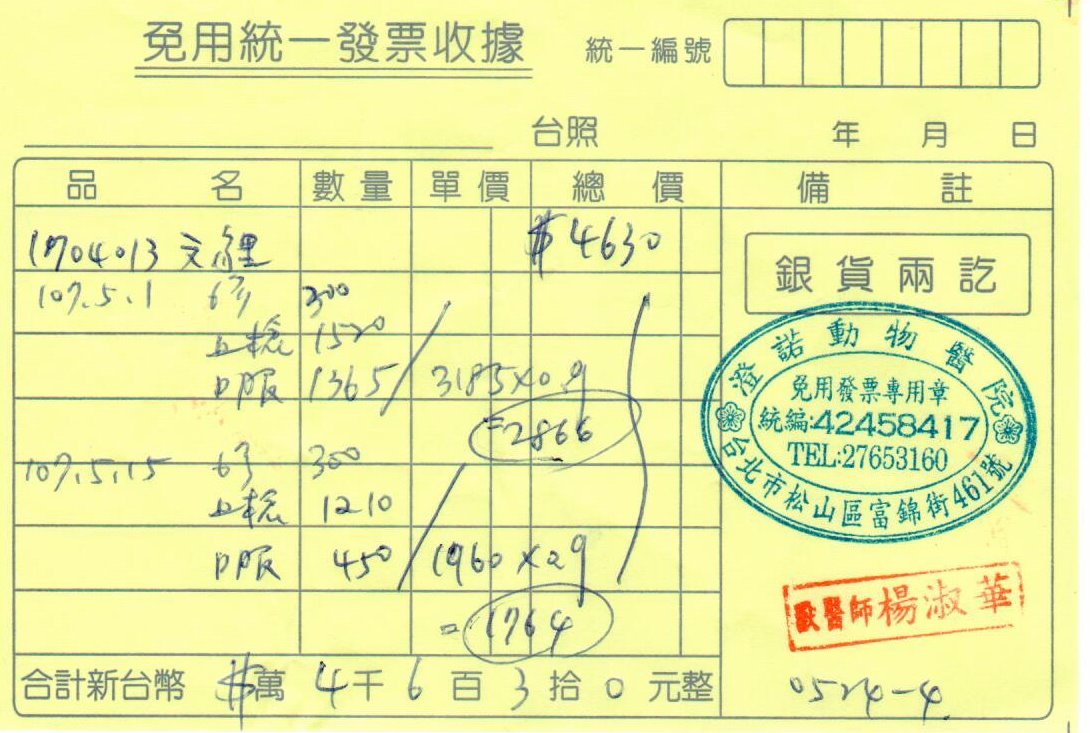 免用統一發票收據
統一編號
台照 年 月 日
品名 數量 單價 總價 備註
1704013 $4630
銀貨兩訖
107.5.1 300
血檢 1520
口服 1365 3185×0.9
=2866
107.5.15 300
血檢 1210
口服 450 1960×0.9
=1764
合計新台幣 $萬 4千 6百 3拾 0元整
澄諾動物醫院
免用發票專用章
統編:42458417
TEL:27653160
台北市松山區富錦街461號
獸醫師楊淑華
0524-4